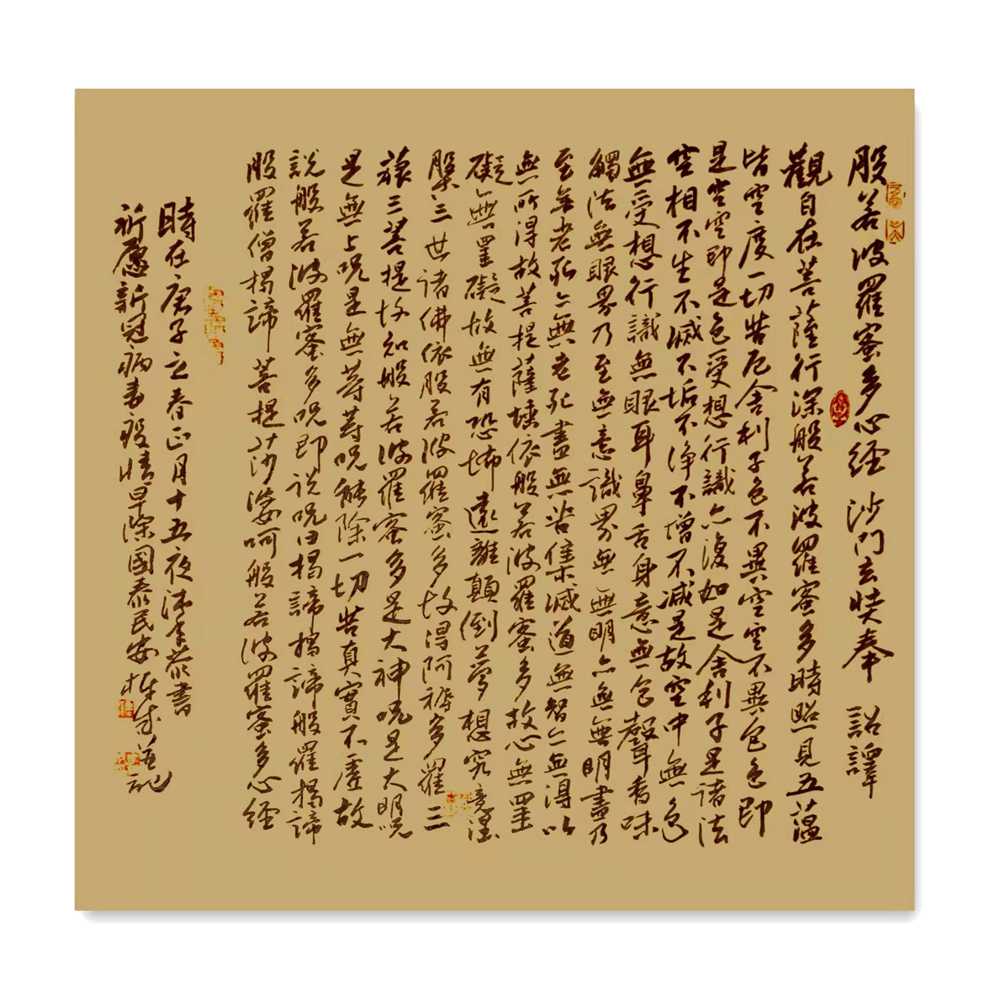 般若波羅蜜多心經 沙門玄奘奉 詔譯
觀自在菩薩行深般若波羅蜜多時照見五蘊
皆空度一切苦厄舍利子色不異空空不異色色即
是空空即是色受想行識亦復如是舍利子是諸法
空相不生不滅不垢不淨不增不減是故空中無色
無受想行識無眼耳鼻舌身意無色聲香味
觸法無眼界乃至無意識界無無明亦無無明盡乃
至無老死亦無老死盡無苦集滅道無智亦無得以
無所得故菩提薩埵依般若波羅蜜多故心無罣
礙無罣礙故無有恐怖遠離顛倒夢想究竟涅
槃三世諸佛依般若波羅蜜多故得阿耨多羅三
藐三菩提故知般若波羅蜜多是大神呪是大明呪
是無上呪是無等等呪能除一切苦真實不虛故
說般若波羅蜜多呪即説呪曰揭諦揭諦般羅揭諦
般羅僧揭諦 菩提薩婆呵般若波羅蜜多心經
時在庚子之春正月十五夜沐手恭書
祈愿新冠病毒疫情早除國泰民安